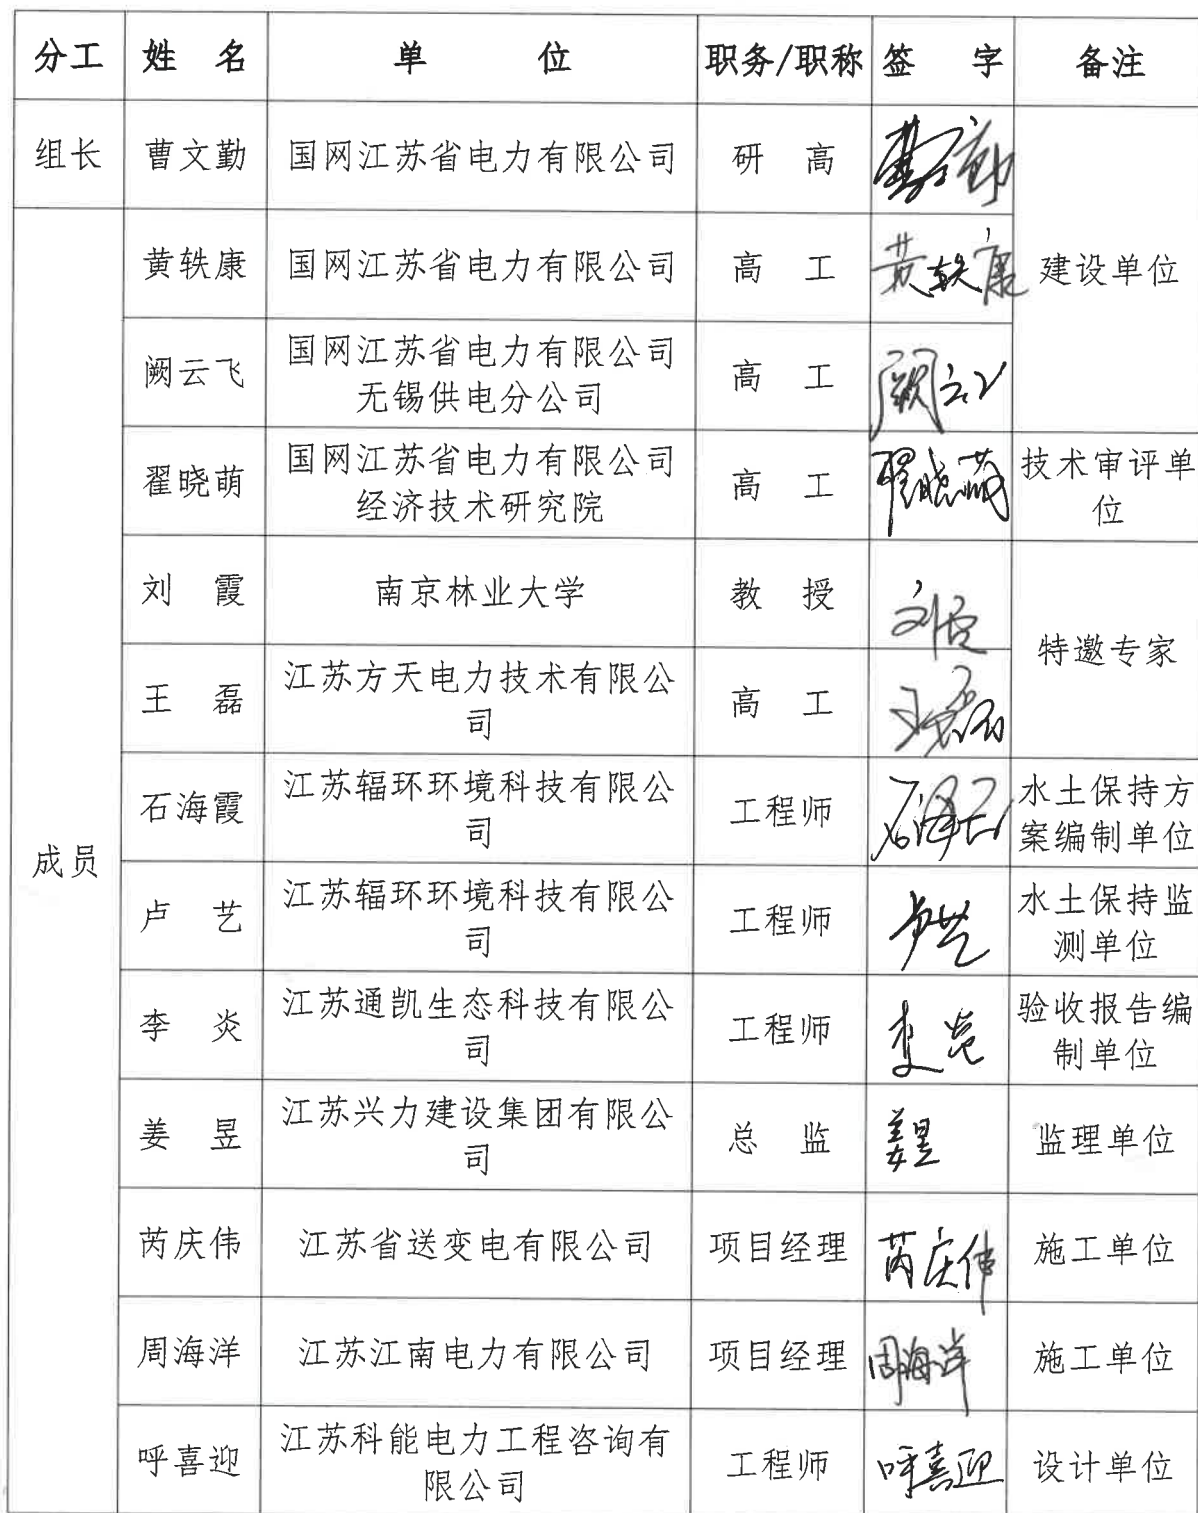 分工 姓 名 单 位 职务/职称 签 字 备注
组长 曹文勤 国网江苏省电力有限公司 研 高 曹文勤
黄轶康 国网江苏省电力有限公司 高 工 黄轶康 建设单位
阙云飞 国网江苏省电力有限公司 高 工 阙云飞
无锡供电分公司
翟晓萌 国网江苏省电力有限公司 高 工 翟晓萌 技术审评单
经济技术研究院 位
刘 霞 南京林业大学 教 授 刘霞
特邀专家
王 磊 江苏方天电力技术有限公 高 工 王磊
司
石海霞 江苏辐环环境科技有限公 工程师 石海霞 水土保持方
司 案编制单位
成员
卢 艺 江苏辐环环境科技有限公 工程师 卢艺 水土保持监
司 测单位
李 炎 江苏通凯生态科技有限公 工程师 李炎 验收报告编
司 制单位
姜 昱 江苏兴力建设集团有限公 总 监 姜昱 监理单位
司
芮庆伟 江苏省送变电有限公司 项目经理 芮庆伟 施工单位
周海洋 江苏江南电力有限公司 项目经理 周海洋 施工单位
呼喜迎 江苏科能电力工程咨询有 工程师 呼喜迎 设计单位
限公司